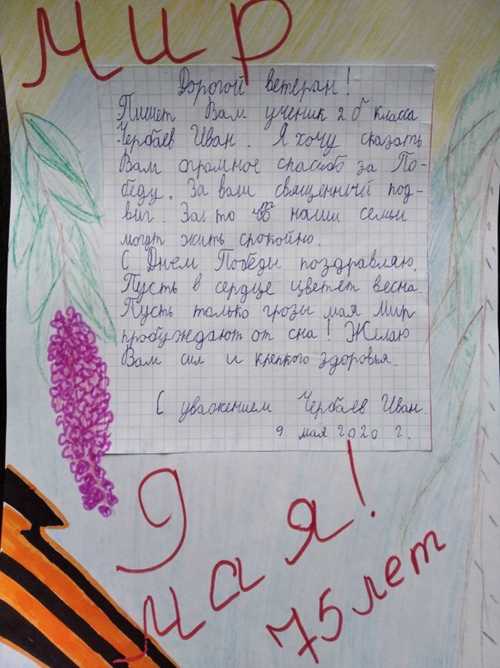 Мир
Дорогой ветеран!
Пишет Вам ученик 2 б класса
Чербаев Иван. Я хочу сказать
Вам огромное спасибо за По-
беду. За ваш священный под-
виг. За то что наши семьи
могут жить спокойно.
С Днем Победы поздравляю.
Пусть в сердце цветет весна
Пусть только грозы мая Мир
пробуждают от сна! Желаю
Вам сил и крепкого здоровья.
С уважением Чербаев Иван.
9 мая 2020 г.
9
мая!
75 лет